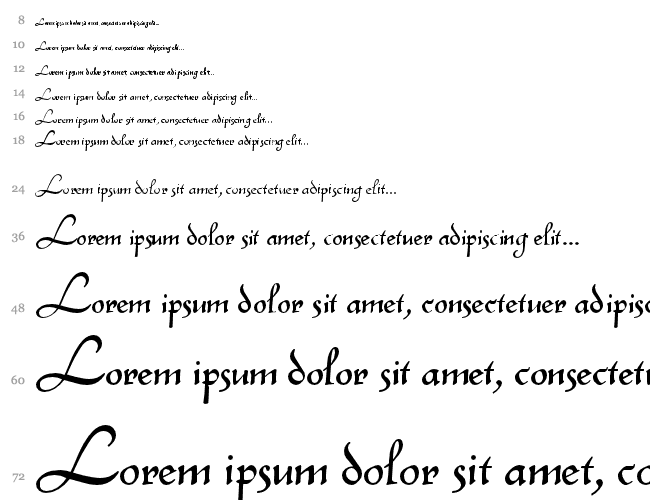 8 Lorem ipsum dolor sit amet, consectetuer adipiscing elit...
10 Lorem ipsum dolor sit amet, consectetuer adipiscing elit...
12 Lorem ipsum dolor sit amet, consectetuer adipiscing elit...
14 Lorem ipsum dolor sit amet, consectetuer adipiscing elit...
16 Lorem ipsum dolor sit amet, consectetuer adipiscing elit...
18 Lorem ipsum dolor sit amet, consectetuer adipiscing elit...
24 Lorem ipsum dolor sit amet, consectetuer adipiscing elit...
36 Lorem ipsum dolor sit amet, consectetuer adipiscing elit...
48 Lorem ipsum dolor sit amet, consectetuer adipisc
60 Lorem ipsum dolor sit amet, consectet
72 Lorem ipsum dolor sit amet, co